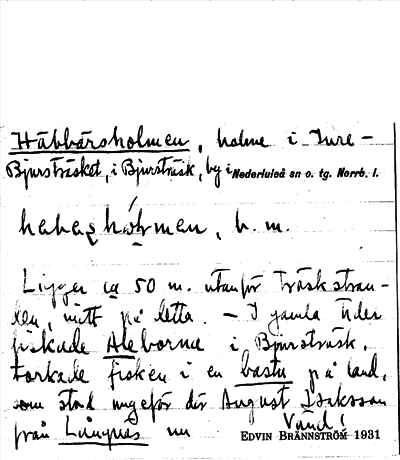 Häbbärsholmen, holme i Inre-
Bjursträsket, i Bjursträsk, by i Nederluleå sn o. tg. Norrb. l.
b. m.
Ligger ca 50 m. utanför träskstran-
den, mitt på detta. – I gamla tider
fiskade Aleborna i Bjursträsk,
torkade fisken i en bastu på land,
som stod ungefär där August Isaksson
från Långnäs nu
Vänd!
EDVIN BRÄNNSTRÖM 1931